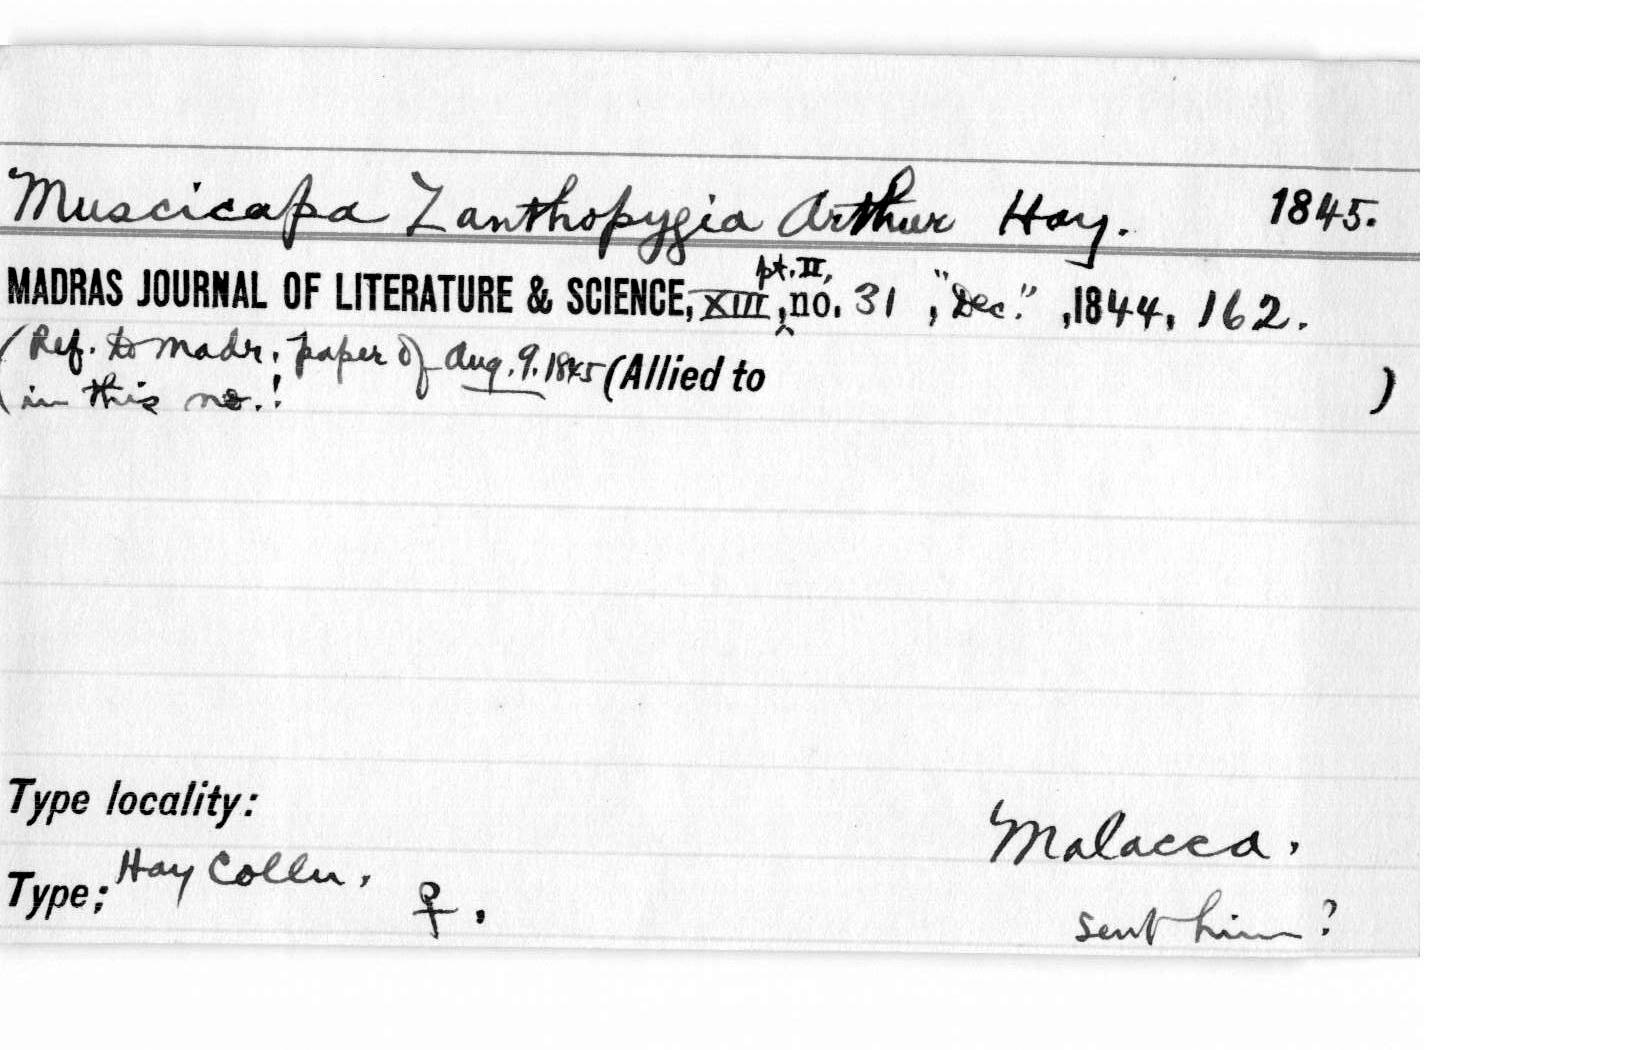 Muscicapa Zanthopygia Arthur Hay. 1845.
MADRAS JOURNAL OF LITERATURE & SCIENCE, XIII, pt. II, no. 31, "Dec.", 1844, 162.
(Ref. to Madr. paper of Aug. 9. 1845 (Allied to )
(in this no.!
Type locality:
Malacca.
Type; Hay Colln. ♀.
sent him?